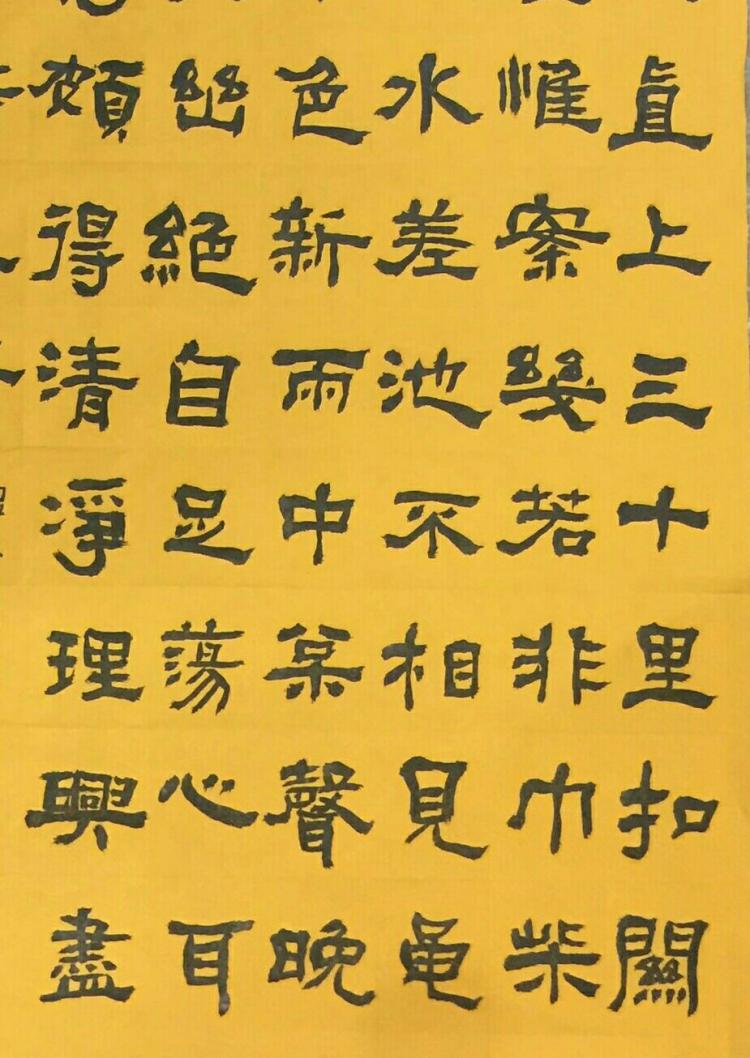 直上三十里扣關
惟案幾若非巾柴
水差池不相見黽
色新雨中枀聲晚
幽絶自足蕩心耳
頗得清淨理興盡